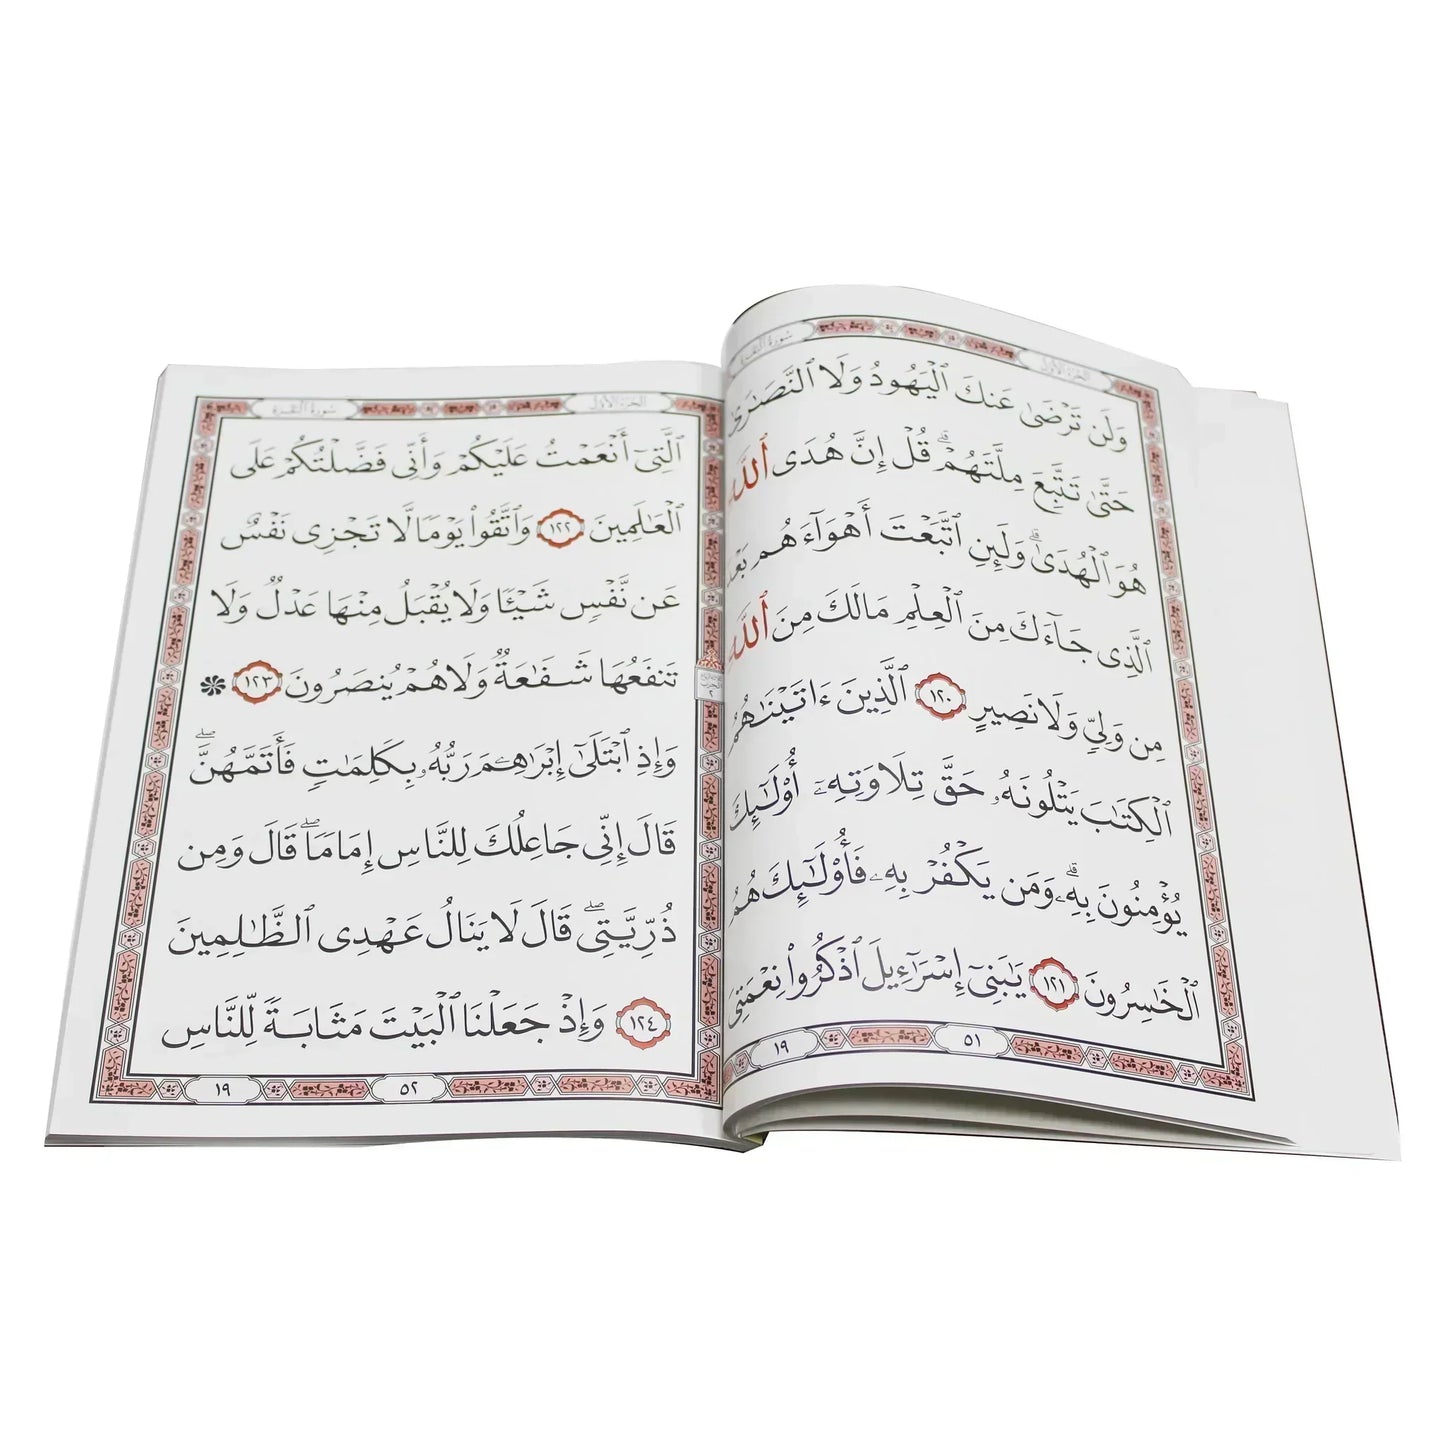 سورة البقرة
الجزء الأول
وَلَن تَرْضَىٰ عَنكَ ٱلْيَهُودُ وَلَا ٱلنَّصَٰرَىٰ
حَتَّىٰ تَتَّبِعَ مِلَّتَهُمْ ۗ قُلْ إِنَّ هُدَى ٱللَّهِ
هُوَ ٱلْهُدَىٰ ۗ وَلَئِنِ ٱتَّبَعْتَ أَهْوَآءَهُم بَعْدَ
ٱلَّذِى جَآءَكَ مِنَ ٱلْعِلْمِ مَا لَكَ مِنَ ٱللَّهِ
مِن وَلِىٍّ وَلَا نَصِيرٍ ١٢٠ ٱلَّذِينَ ءَاتَيْنَٰهُمُ
ٱلْكِتَٰبَ يَتْلُونَهُۥ حَقَّ تِلَاوَتِهِۦٓ أُو۟لَٰٓئِكَ
يُؤْمِنُونَ بِهِۦ ۗ وَمَن يَكْفُرْ بِهِۦ فَأُو۟لَٰٓئِكَ هُمُ
ٱلْخَٰسِرُونَ ١٢١ يَٰبَنِىٓ إِسْرَٰٓءِيلَ ٱذْكُرُوا۟ نِعْمَتِىَ
٥١
١٩
سورة البقرة
الجزء الأول
ٱلَّتِىٓ أَنْعَمْتُ عَلَيْكُمْ وَأَنِّى فَضَّلْتُكُمْ عَلَى
ٱلْعَٰلَمِينَ ١٢٢ وَٱتَّقُوا۟ يَوْمًا لَّا تَجْزِى نَفْسٌ
عَن نَّفْسٍ شَيْـًٔا وَلَا يُقْبَلُ مِنْهَا عَدْلٌ وَلَا
تَنفَعُهَا شَفَٰعَةٌ وَلَا هُمْ يُنصَرُونَ ١٢٣
وَإِذِ ٱبْتَلَىٰٓ إِبْرَٰهِۦمَ رَبُّهُۥ بِكَلِمَٰتٍ فَأَتَمَّهُنَّ ۖ
قَالَ إِنِّى جَاعِلُكَ لِلنَّاسِ إِمَامًا ۖ قَالَ وَمِن
ذُرِّيَّتِى ۖ قَالَ لَا يَنَالُ عَهْدِى ٱلظَّٰلِمِينَ
١٢٤ وَإِذْ جَعَلْنَا ٱلْبَيْتَ مَثَابَةً لِّلنَّاسِ
٥٢
١٩